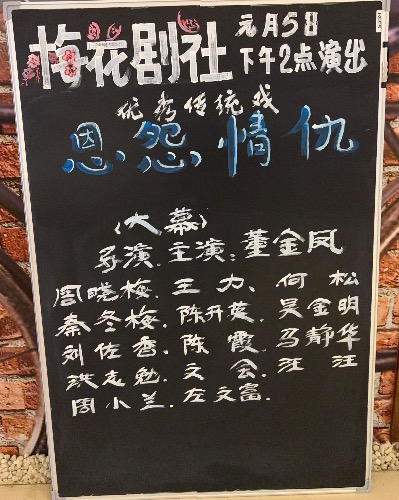 梅花剧社
元月5日
下午2点演出
优秀传统戏
恩怨情仇
(大幕)
导演.主演:董金凤
周晓梅.王力.何松
秦冬梅.陈开英.吴金明
刘佐香.陈霞.马静华
洪志勉.文会.汪汪
周小兰.左文富.